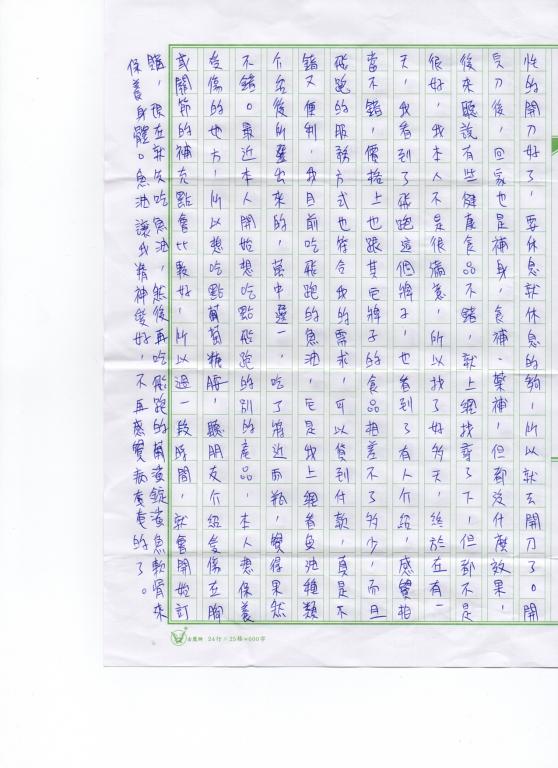 性的開刀好了，要休息就休息的夠，所以就去開刀了。開
完刀後，回家也是補身，食補、藥補，但都沒什麼效果，
後來聽說有些健康食品不錯，就上網找尋了下，但都不是
很好，我本人不是很滿意，所以找了好多天，終於在有一
天，我看到了飛跑這個牌子，也看到了有人介紹，感覺相
當不錯，價格上也跟其它牌子的食品相差不了多少，而且
飛跑的服務方式也符合我的需求，可以貨到付款，真是不
錯又便利，我目前吃飛跑的魚油，它是我上網看魚油種類
介紹後所選出來的，萬中選一，吃了將近兩瓶，覺得果然
不錯。最近本人開始想吃點飛跑的別的產品，本人想保養
受傷的地方，所以想吃點葡萄糖胺，聽朋友介紹受傷在胸
或關節的補充點會比較好，所以過一段時間，就會開始訂
購，現在就先吃魚油，然後再吃飛跑的葡濱錠濱魚軟骨來
保養身體。魚油讓我精神變好，不再感覺病奄奄的了。
24行×25格=600字